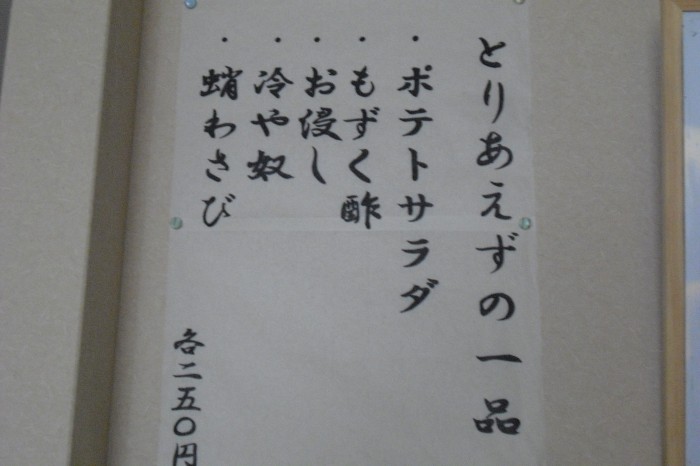 とりあえずの一品
・ポテトサラダ
・もずく酢
・お浸し
・冷や奴
・蛸わさび
各二五〇円